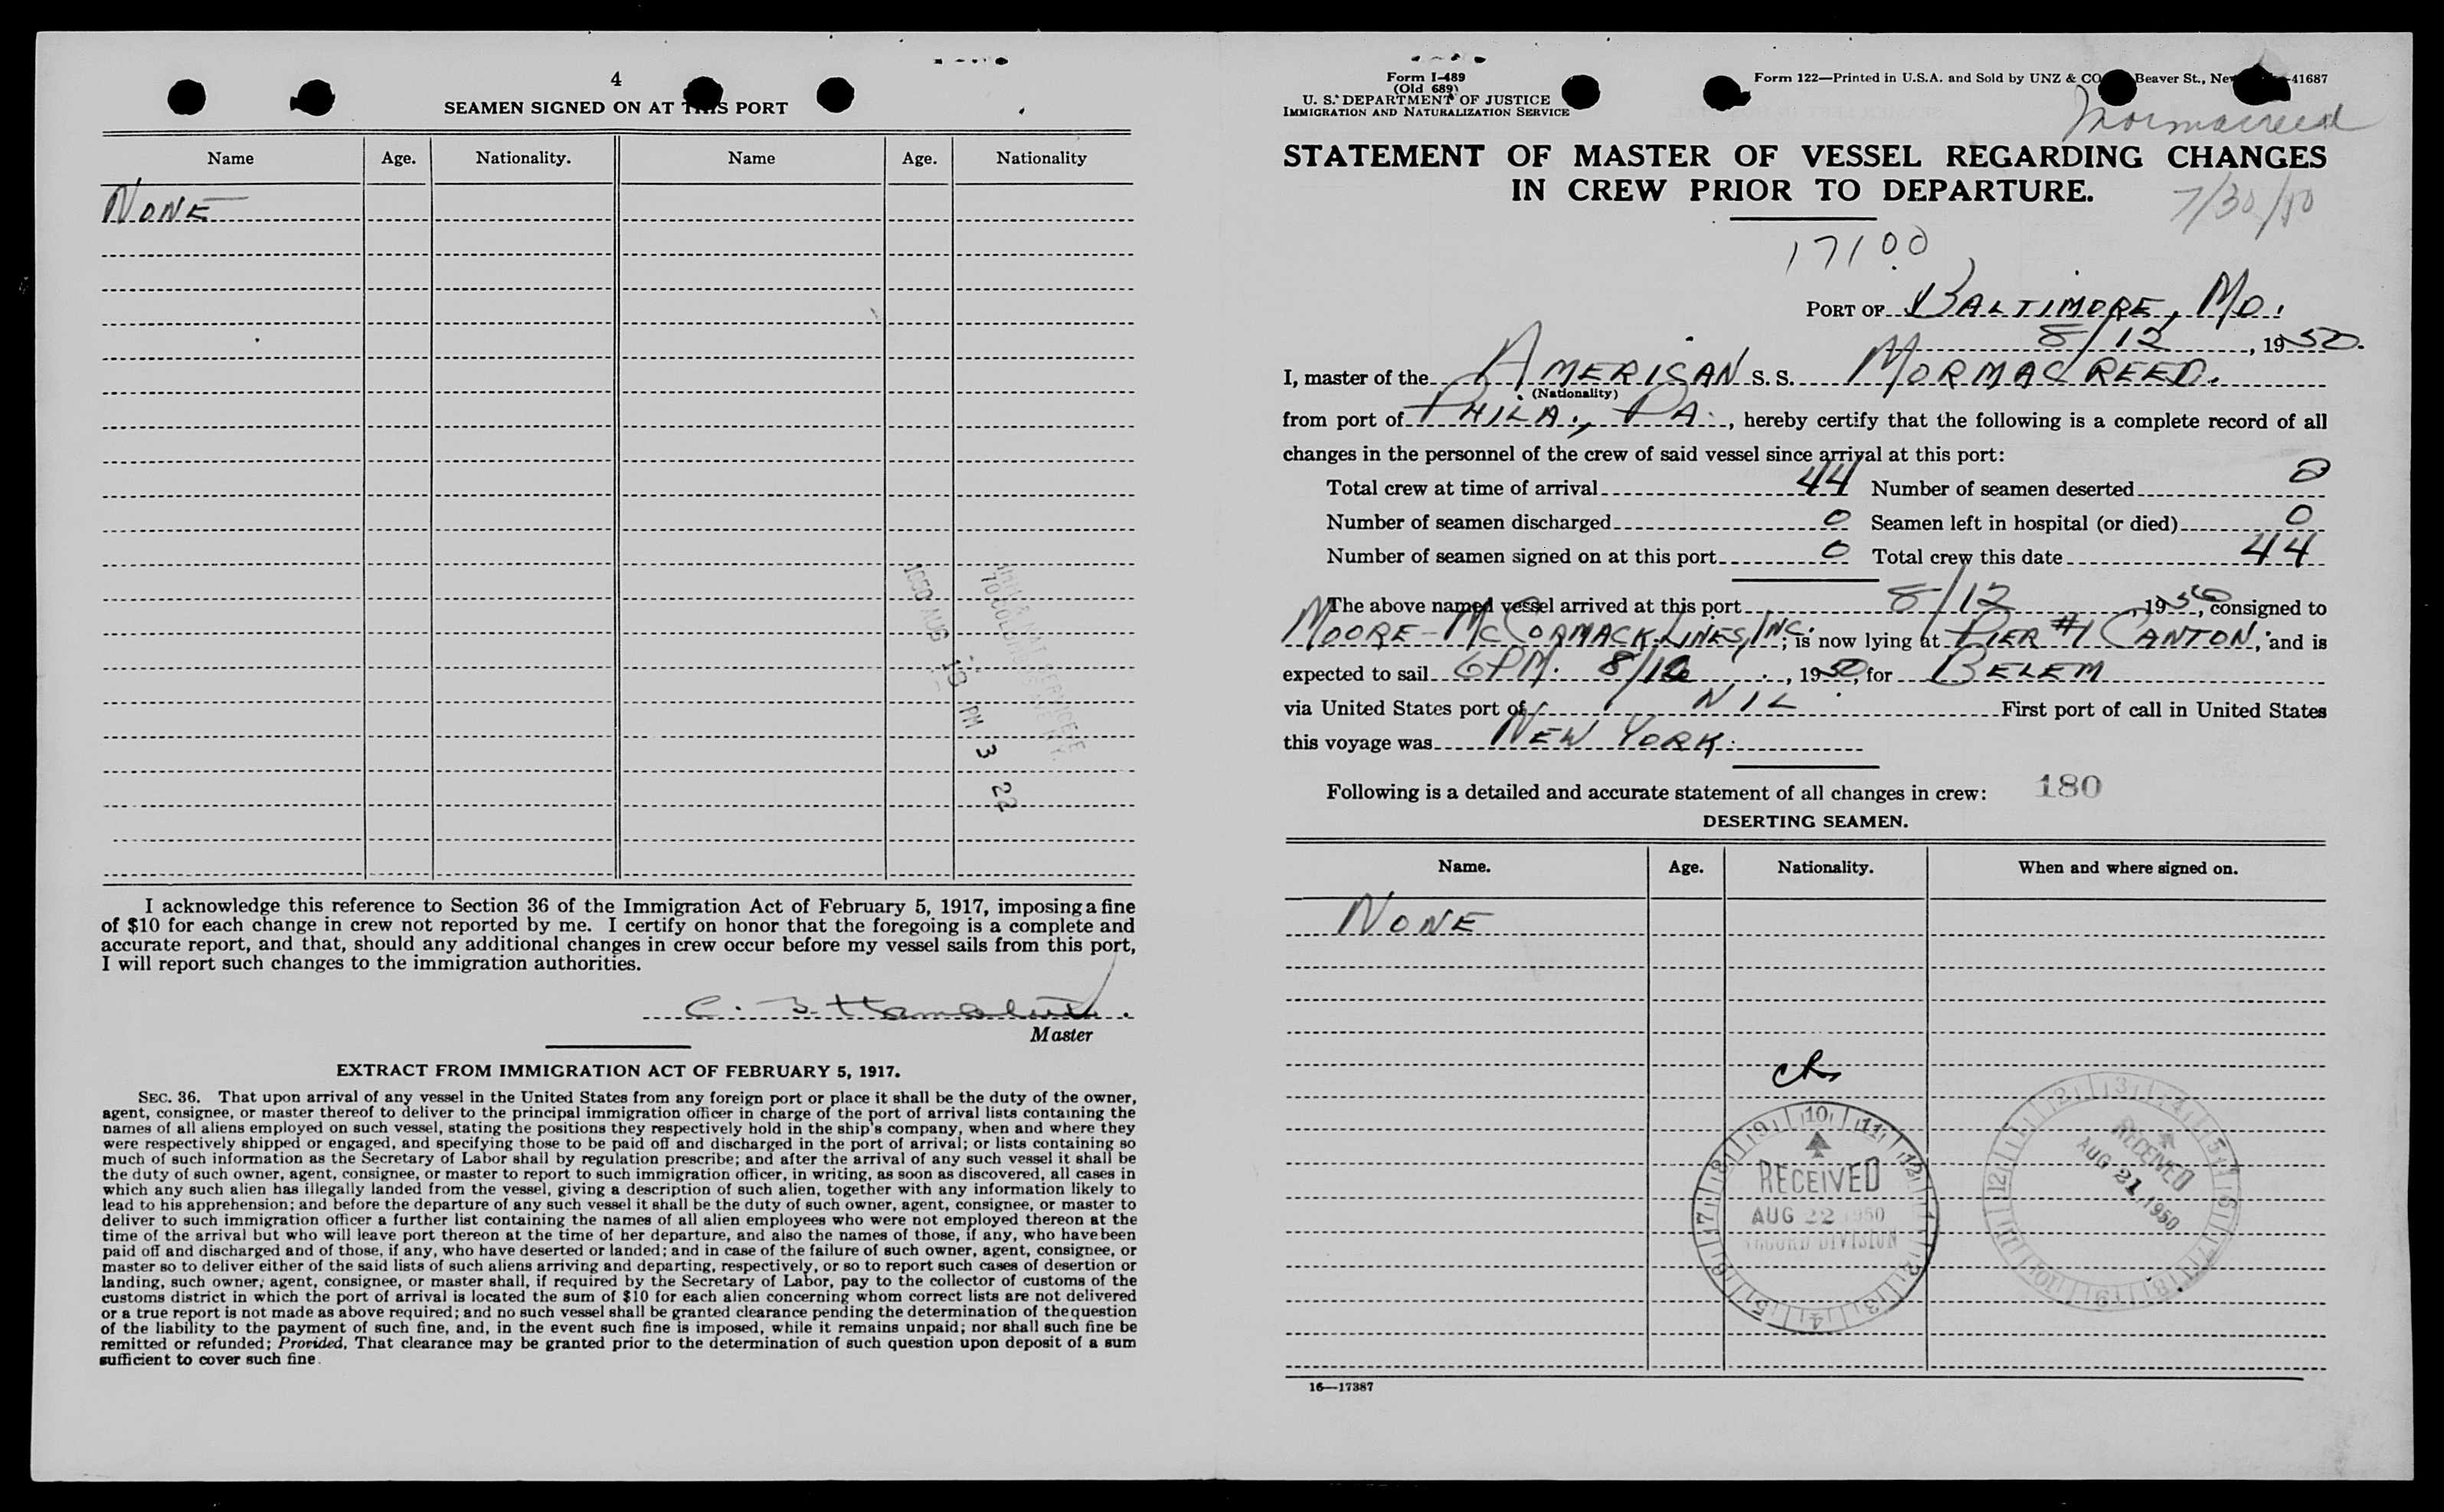 4
SEAMEN SIGNED ON AT THIS PORT
Name Age. Nationality. Name Age. Nationality
NONE
1950 AUG 18 PM 3 22
I acknowledge this reference to Section 36 of the Immigration Act of February 5, 1917, imposing a fine
of $10 for each change in crew not reported by me. I certify on honor that the foregoing is a complete and
accurate report, and that, should any additional changes in crew occur before my vessel sails from this port,
I will report such changes to the immigration authorities.
C. B.
Master
EXTRACT FROM IMMIGRATION ACT OF FEBRUARY 5, 1917.
SEC. 36. That upon arrival of any vessel in the United States from any foreign port or place it shall be the duty of the owner,
agent, consignee, or master thereof to deliver to the principal immigration officer in charge of the port of arrival lists containing the
names of all aliens employed on such vessel, stating the positions they respectively hold in the ship's company, when and where they
were respectively shipped or engaged, and specifying those to be paid off and discharged in the port of arrival; or lists containing so
much of such information as the Secretary of Labor shall by regulation prescribe; and after the arrival of any such vessel it shall be
the duty of such owner, agent, consignee, or master to report to such immigration officer, in writing, as soon as discovered, all cases in
which any such alien has illegally landed from the vessel, giving a description of such alien, together with any information likely to
lead to his apprehension; and before the departure of any such vessel it shall be the duty of such owner, agent, consignee, or master to
deliver to such immigration officer a further list containing the names of all alien employees who were not employed thereon at the
time of the arrival but who will leave port thereon at the time of her departure, and also the names of those, if any, who have been
paid off and discharged and of those, if any, who have deserted or landed; and in case of the failure of such owner, agent, consignee, or
master so to deliver either of the said lists of such aliens arriving and departing, respectively, or so to report such cases of desertion or
landing, such owner, agent, consignee, or master shall, if required by the Secretary of Labor, pay to the collector of customs of the
customs district in which the port of arrival is located the sum of $10 for each alien concerning whom correct lists are not delivered
or a true report is not made as above required; and no such vessel shall be granted clearance pending the determination of the question
of the liability to the payment of such fine, and, in the event such fine is imposed, while it remains unpaid; nor shall such fine be
remitted or refunded; Provided, That clearance may be granted prior to the determination of such question upon deposit of a sum
sufficient to cover such fine.
Form I-489
(Old 689)
U. S. DEPARTMENT OF JUSTICE
IMMIGRATION AND NATURALIZATION SERVICE
Form 122—Printed in U.S.A. and Sold by UNZ & CO Beaver St., New -41687
Mormacreed
STATEMENT OF MASTER OF VESSEL REGARDING CHANGES
IN CREW PRIOR TO DEPARTURE.
7/30/50
17100
PORT OF BALTIMORE, MD.
8/12, 1950.
I, master of the AMERICAN S. S. MORMACREED.
(Nationality)
from port of PHILA., PA., hereby certify that the following is a complete record of all
changes in the personnel of the crew of said vessel since arrival at this port:
Total crew at time of arrival 44 Number of seamen deserted 0
Number of seamen discharged 0 Seamen left in hospital (or died) 0
Number of seamen signed on at this port 0 Total crew this date 44
The above named vessel arrived at this port 8/12, 1950, consigned to
MOORE-MCCORMACK LINES, INC.; is now lying at PIER #1 CANTON, and is
expected to sail 6 PM. 8/12, 1950, for BELEM
via United States port of NIL First port of call in United States
this voyage was NEW YORK.
Following is a detailed and accurate statement of all changes in crew: 180
DESERTING SEAMEN.
Name. Age. Nationality. When and where signed on.
NONE
RECEIVED
AUG 22 1950
RECORD DIVISION
RECEIVED
AUG 21 1950
16—17387